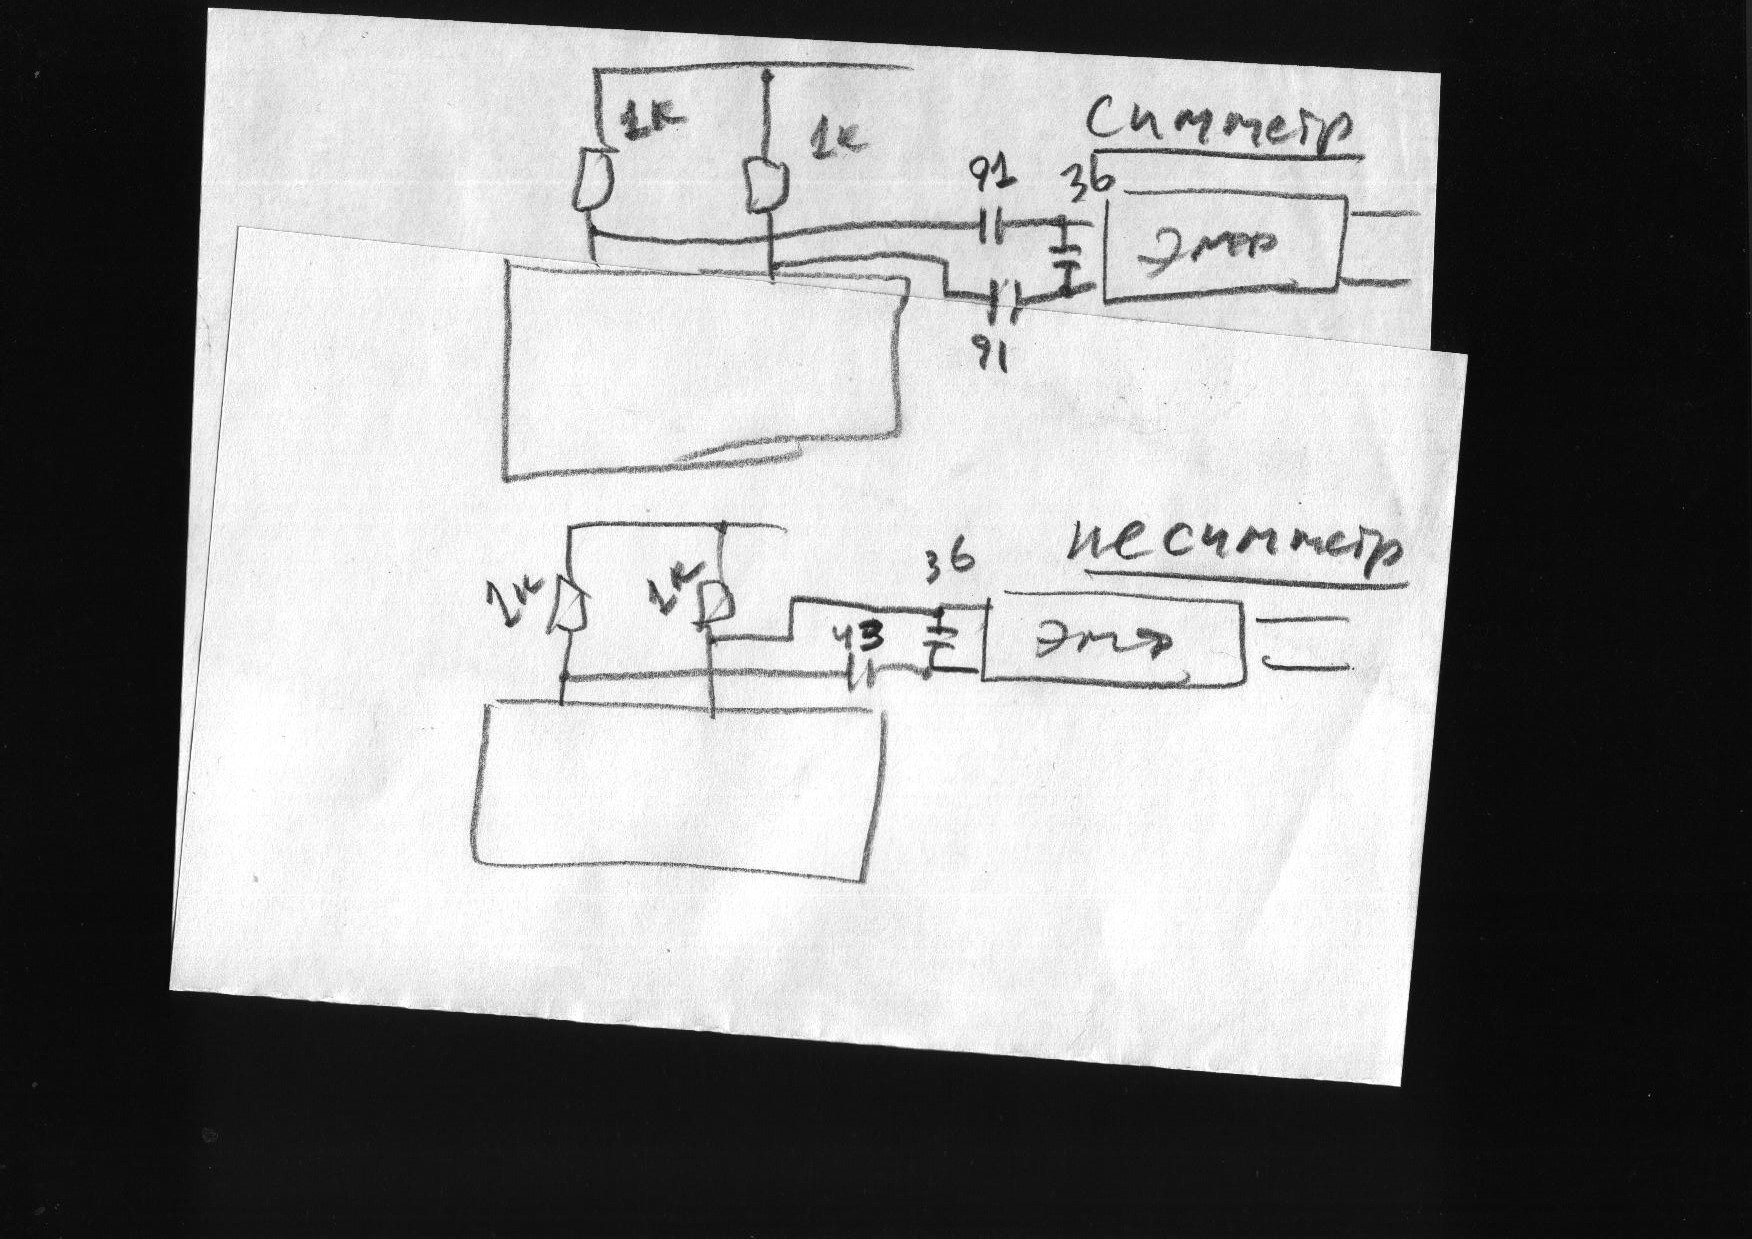 Симметр
1к
1к
91
36
91
Несимметр
36
1к
1к
43